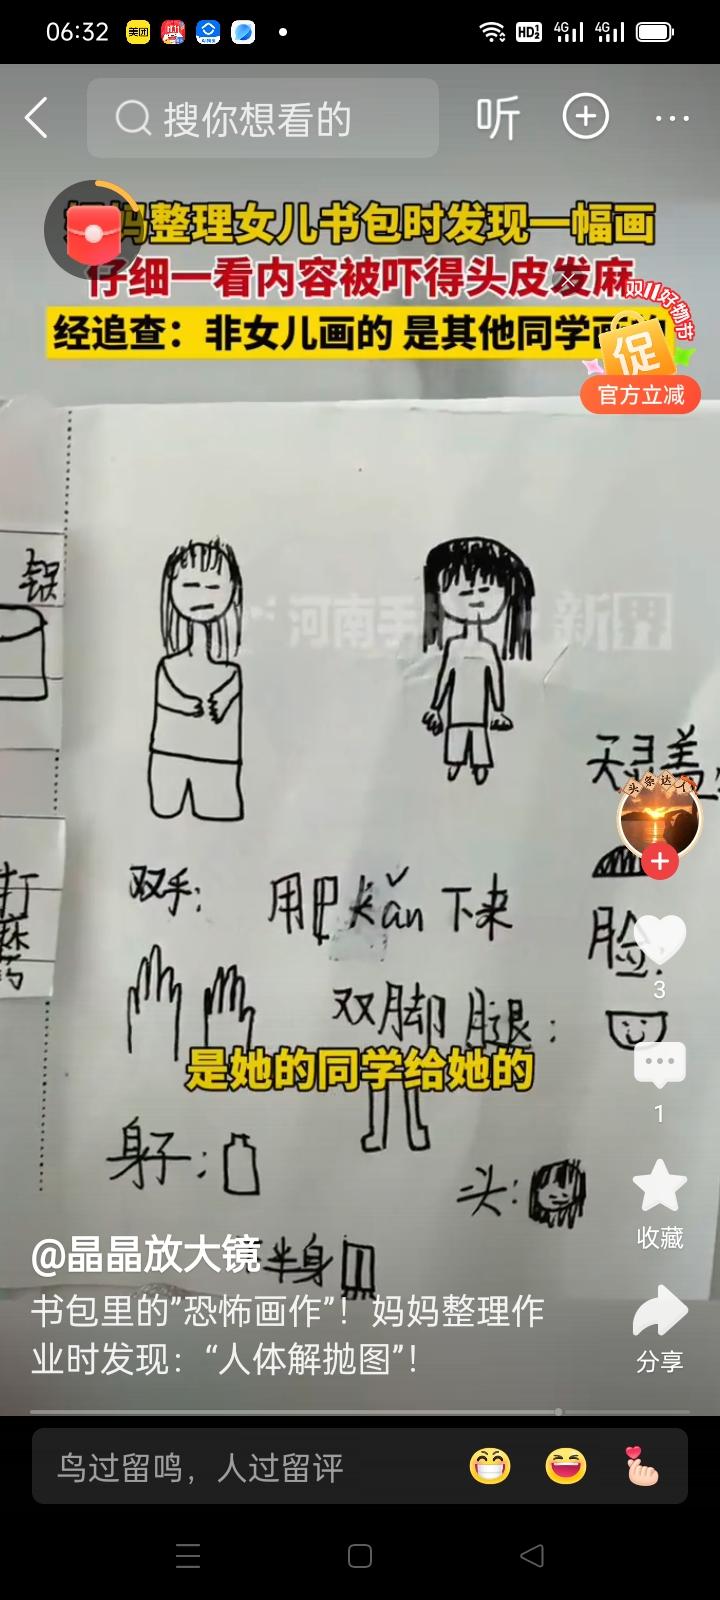 06:32
美团
HD
4G
4G
搜你想看的
听
妈妈整理女儿书包时发现一幅画
仔细一看内容被吓得头皮发麻
双11好物节
经追查：非女儿画的 是其他同学画的
促
官方立减
锯
河南手机报 新闻
天灵盖
头条达人
打
磨
双手：
用巴kǎn下来
脸：
3
双脚 腿：
是她的同学给她的
1
身子：
头：
收藏
@晶晶放大镜
半身
书包里的”恐怖画作”！妈妈整理作
业时发现：“人体解抛图”！
分享
鸟过留鸣，人过留评